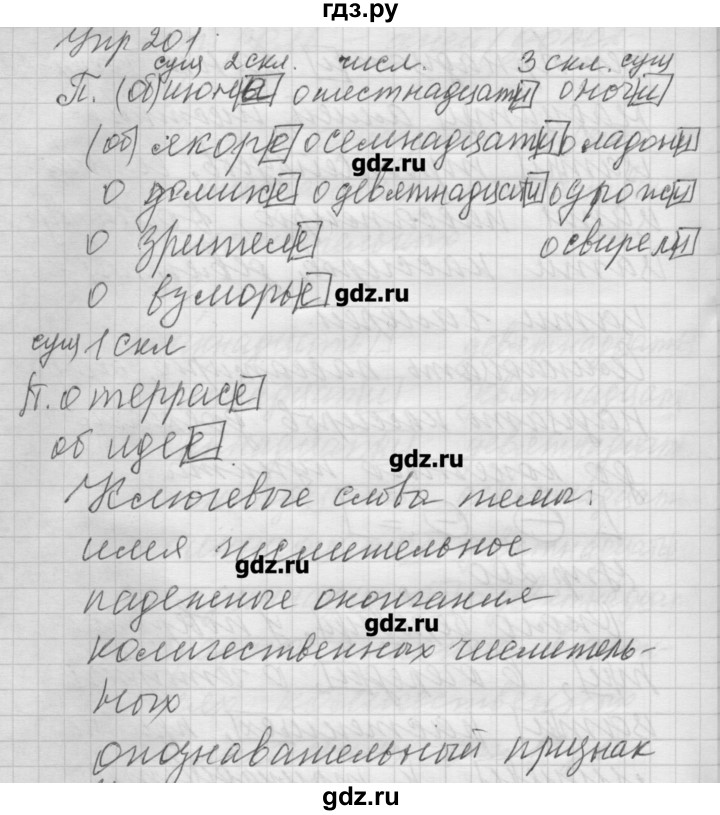 гдз.ру
Упр 201
сущ 2 скл. числ. 3 скл. сущ
П. (об) июне о шестнадцати о ночи
(об) якоре о семнадцати о ладони
gdz.ru
о домике о девятнадцати о дрожи
о зрителе о свирели
о взморье gdz.ru
сущ 1 скл
П. о террасе
об идее
gdz.ru
Ключевые слова темы:
имя числительное
gdz.ru
падежные окончания
gdz.ru
количественных числитель-
ных
опознавательный признак
gdz.ru